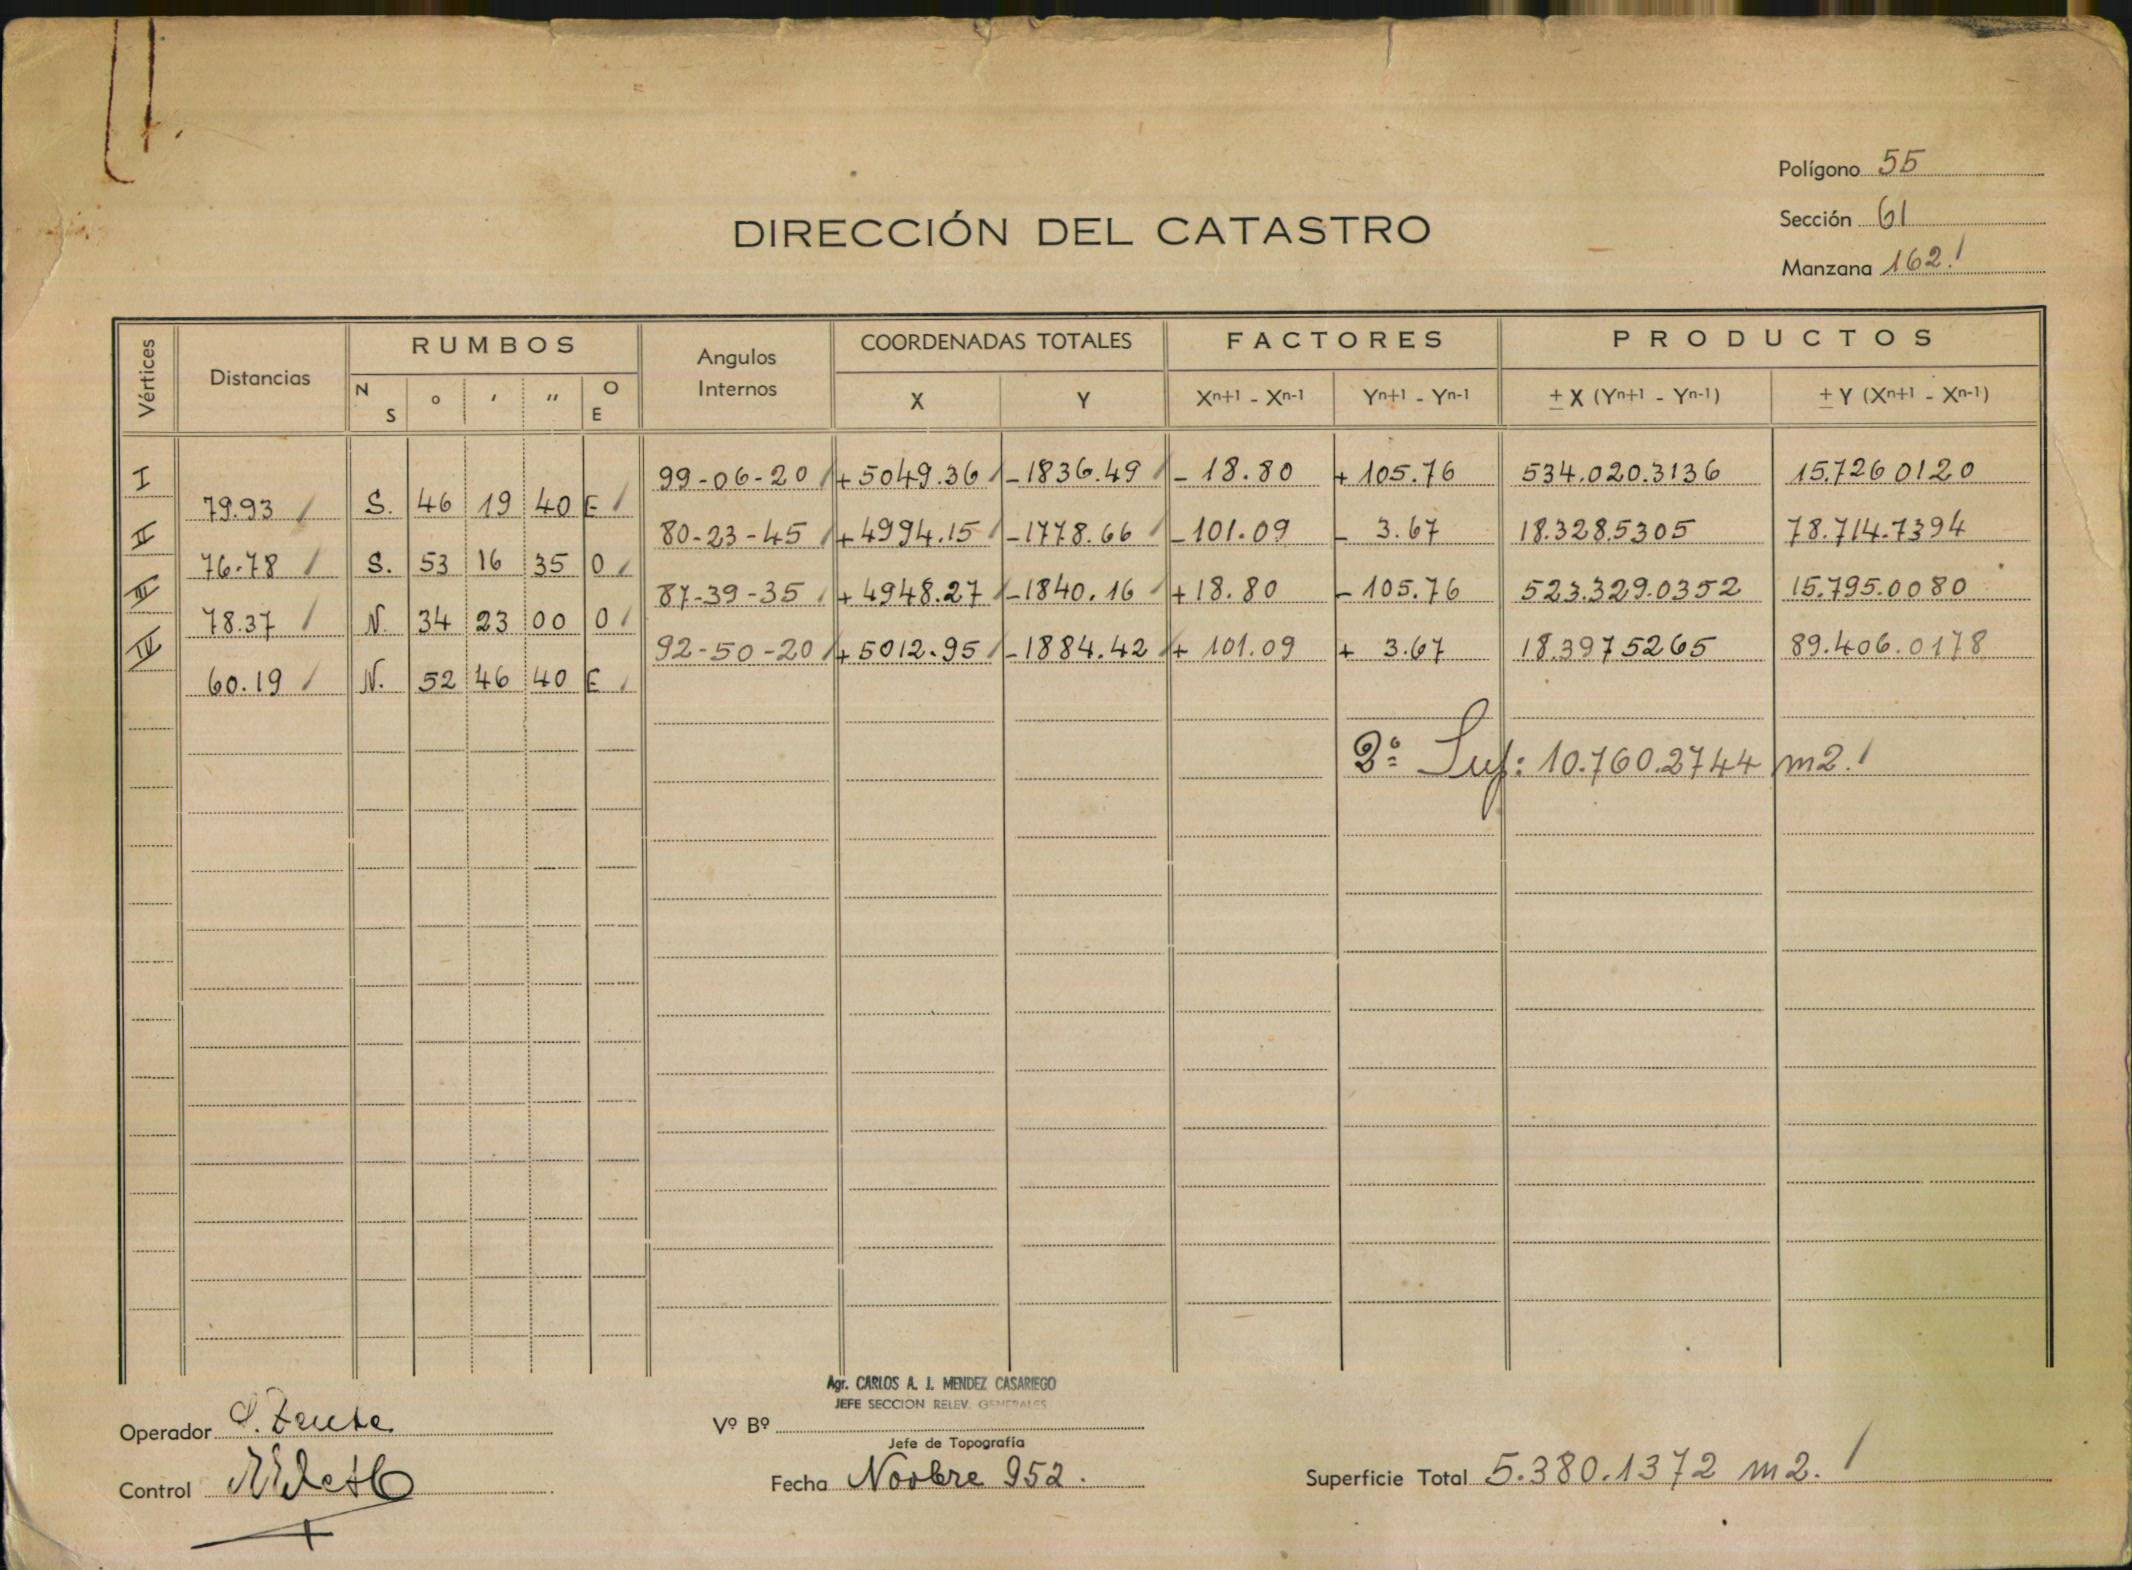 Polígono 55
Sección 61
Manzana 162.
DIRECCIÓN DEL CATASTRO
Vértices Distancias RUMBOS Angulos Internos COORDENADAS TOTALES FACTORES PRODUCTOS
N S o ' " O E X Y Xn+1 - Xn-1 Yn+1 - Yn-1 ± X (Yn+1 - Yn-1) ± Y (Xn+1 - Xn-1)
I 99-06-20 +5049.36 -1836.49 - 18.80 + 105.76 534.020.3136 15.726 0120
79.93 S. 46 19 40 E
II 80-23-45 +4994.15 -1778.66 -101.09 - 3.67 18.328.5305 78.714.7394
76.78 S. 53 16 35 O
III 87-39-35 +4948.27 -1840.16 +18.80 - 105.76 523.329.0352 15.795.0080
78.37 N. 34 23 00 O
IV 92-50-20 +5012.95 -1884.42 + 101.09 + 3.67 18.397 5265 89.406.0178
60.19 N. 52 46 40 E
2ª Sup: 10.760.2744 m2.
Agr. CARLOS A. J. MENDEZ CASARIEGO
JEFE SECCION RELEV. GENERALES
Operador
Vº Bº
Jefe de Topografía
Control
Fecha Novbre 952.
Superficie Total 5.380.1372 m2.